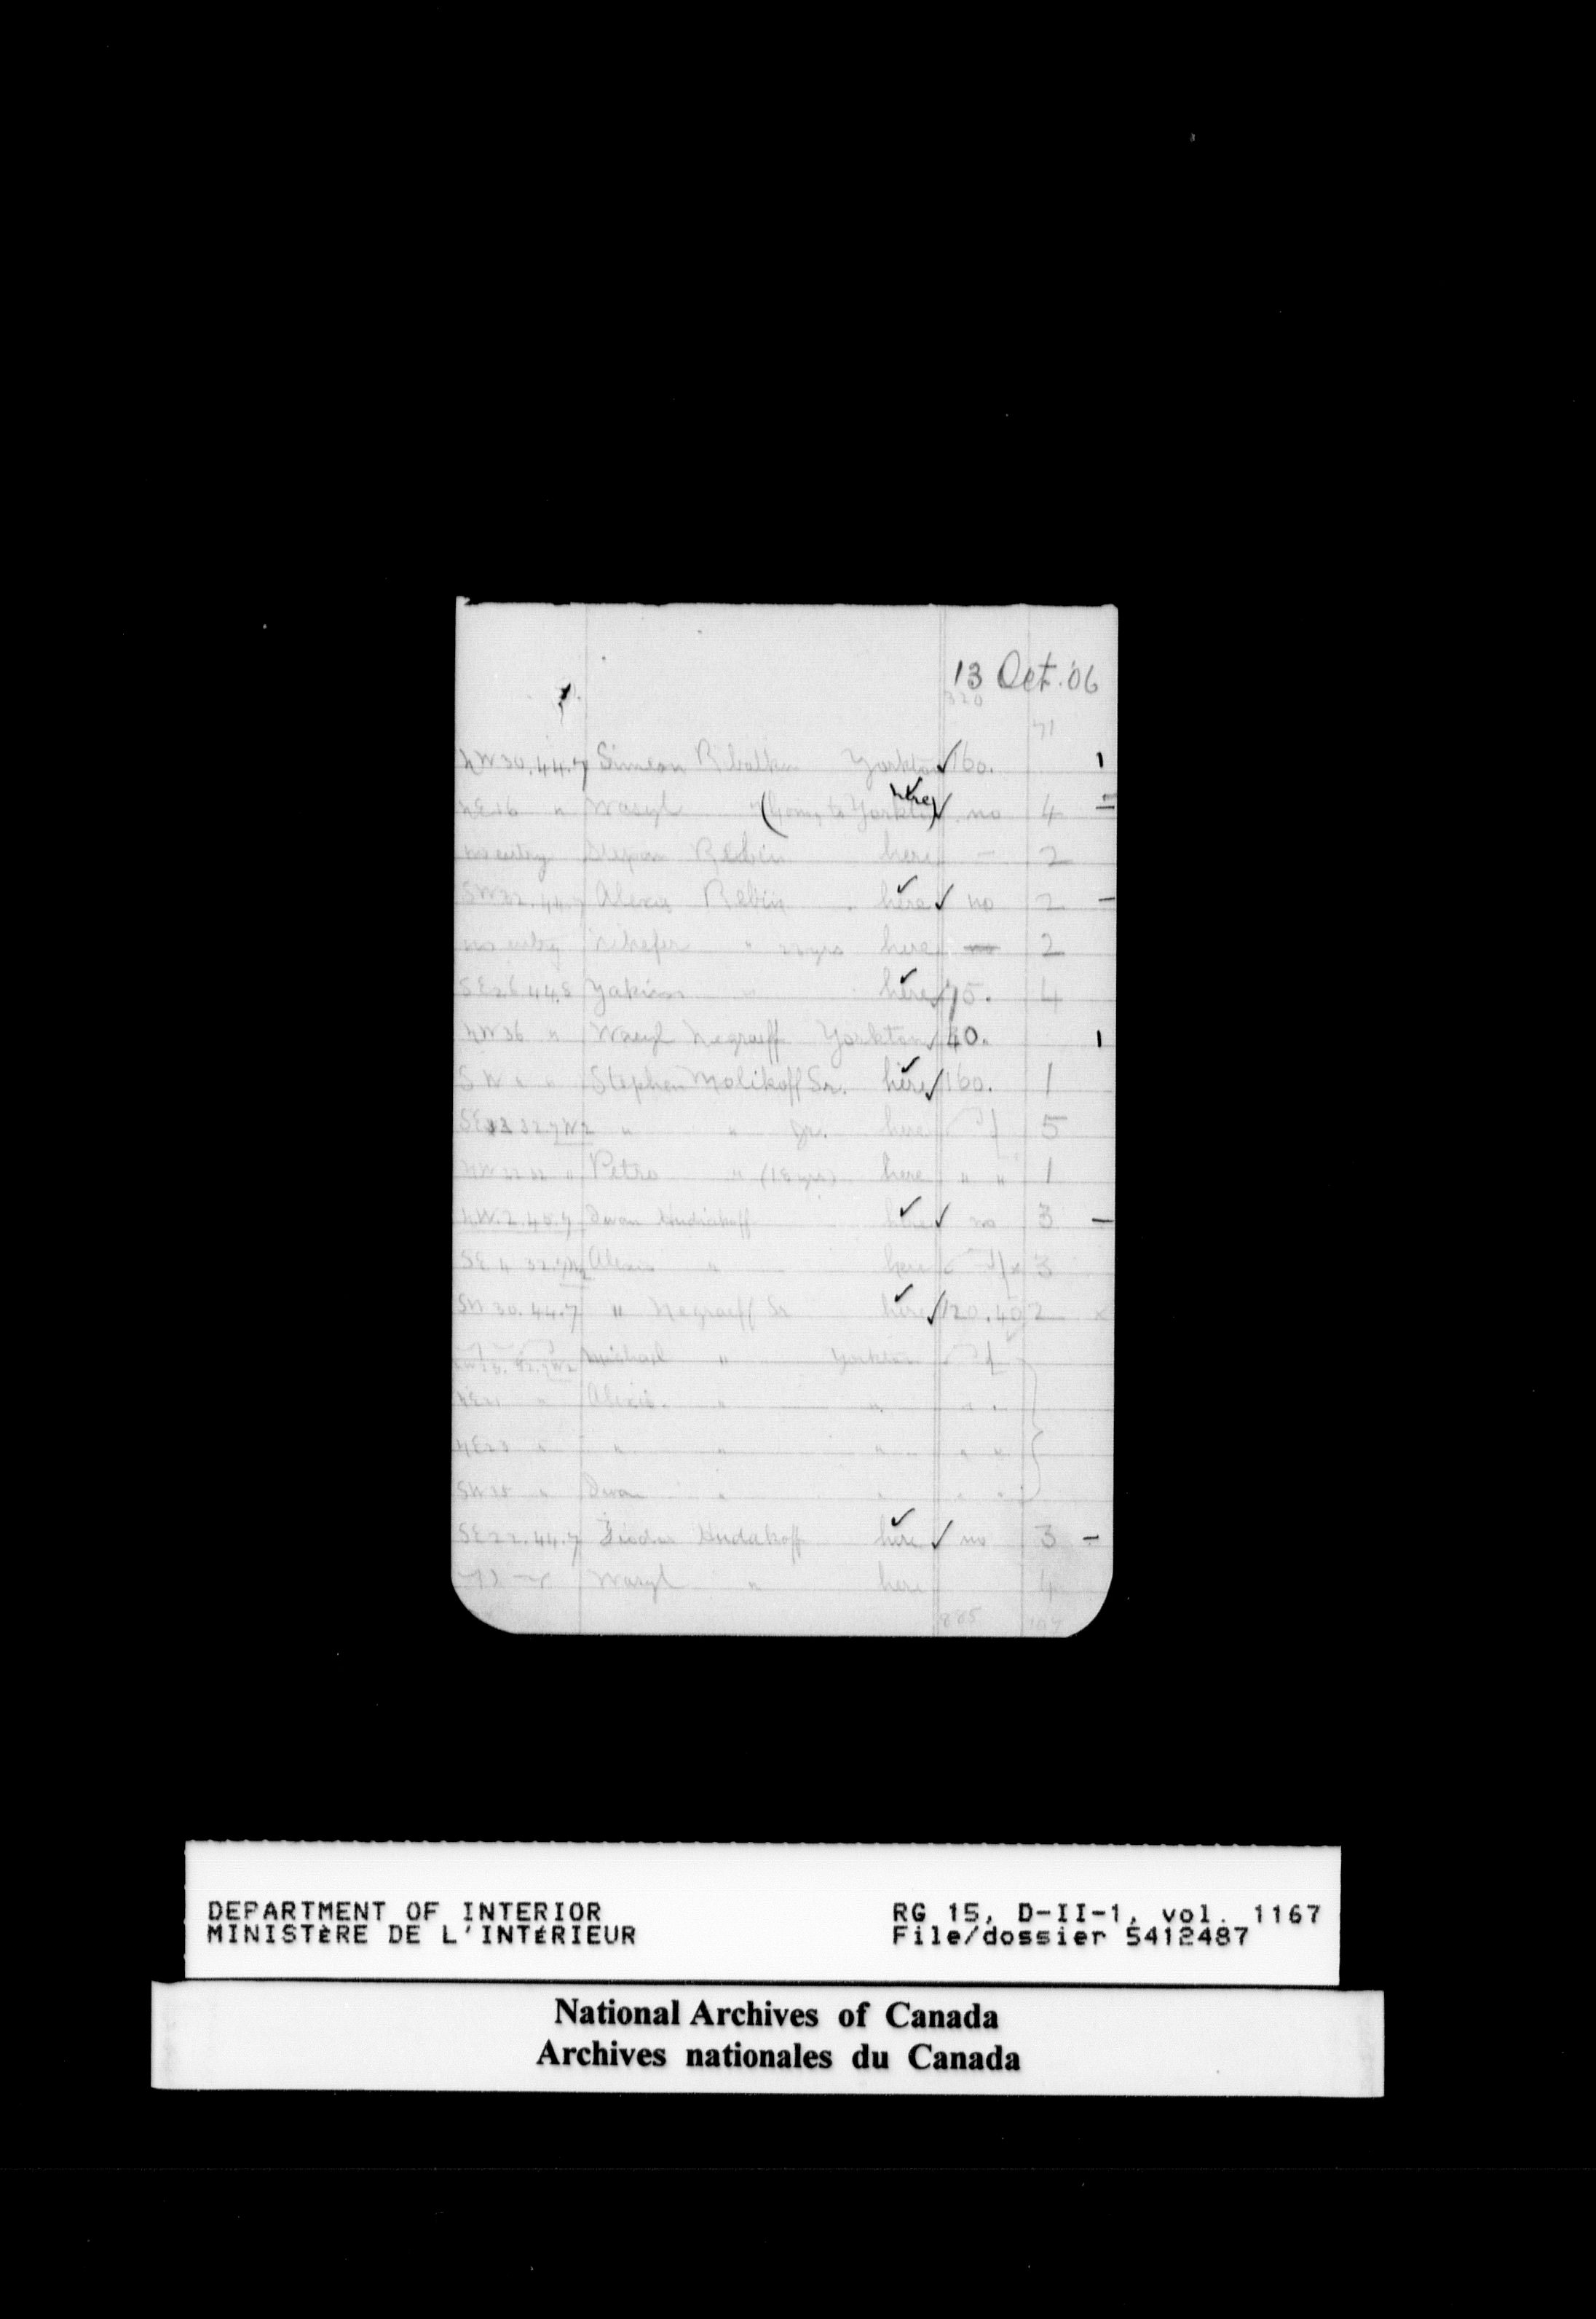 13 Oct. '06
320
71
NW 30.44.7 Simeon Ribalkin Yorkton ✓ 160. 1
NE 16 " Wasyl " (Going to Yorkton) here ✓ no 4 =
no entry Stepan Rebin here — 2
SW 32.44.7 Alexa Rebin here ✓ no 2 –
no entry Nikefer " 23 yrs here no 2
SE 26 44.8 Yakim " here ✓ 75. 4
NW 36 " Wasyl Negraeff Yorkton ✓ 40. 1
SW " " Stephen Molikoff Sr. here ✓ 160. 1
SE 33 32.7 W2 " " Jr. here 5
NW 22 32 " Petro " (18 yrs) here " " 1
NW. 2.45.7 Ivan Hudiakoff here ✓ no 3 –
SE 4 32.7 W2 Alexis " here x 3
SW 30.44.7 " Negraeff Sr here ✓ 120.40 2 x
32.7 W2 Michael " Yorkton
NE " Alexis. " " " "
NE 23 " " " " " "
SW " Ivan " " " "
SE 22.44.7 Fiodor Hudakoff here ✓ no 3 –
Wasyl " here 4
885 107
DEPARTMENT OF INTERIOR
MINISTÈRE DE L'INTÉRIEUR
RG 15, D-II-1, vol. 1167
File/dossier 5412487
National Archives of Canada
Archives nationales du Canada